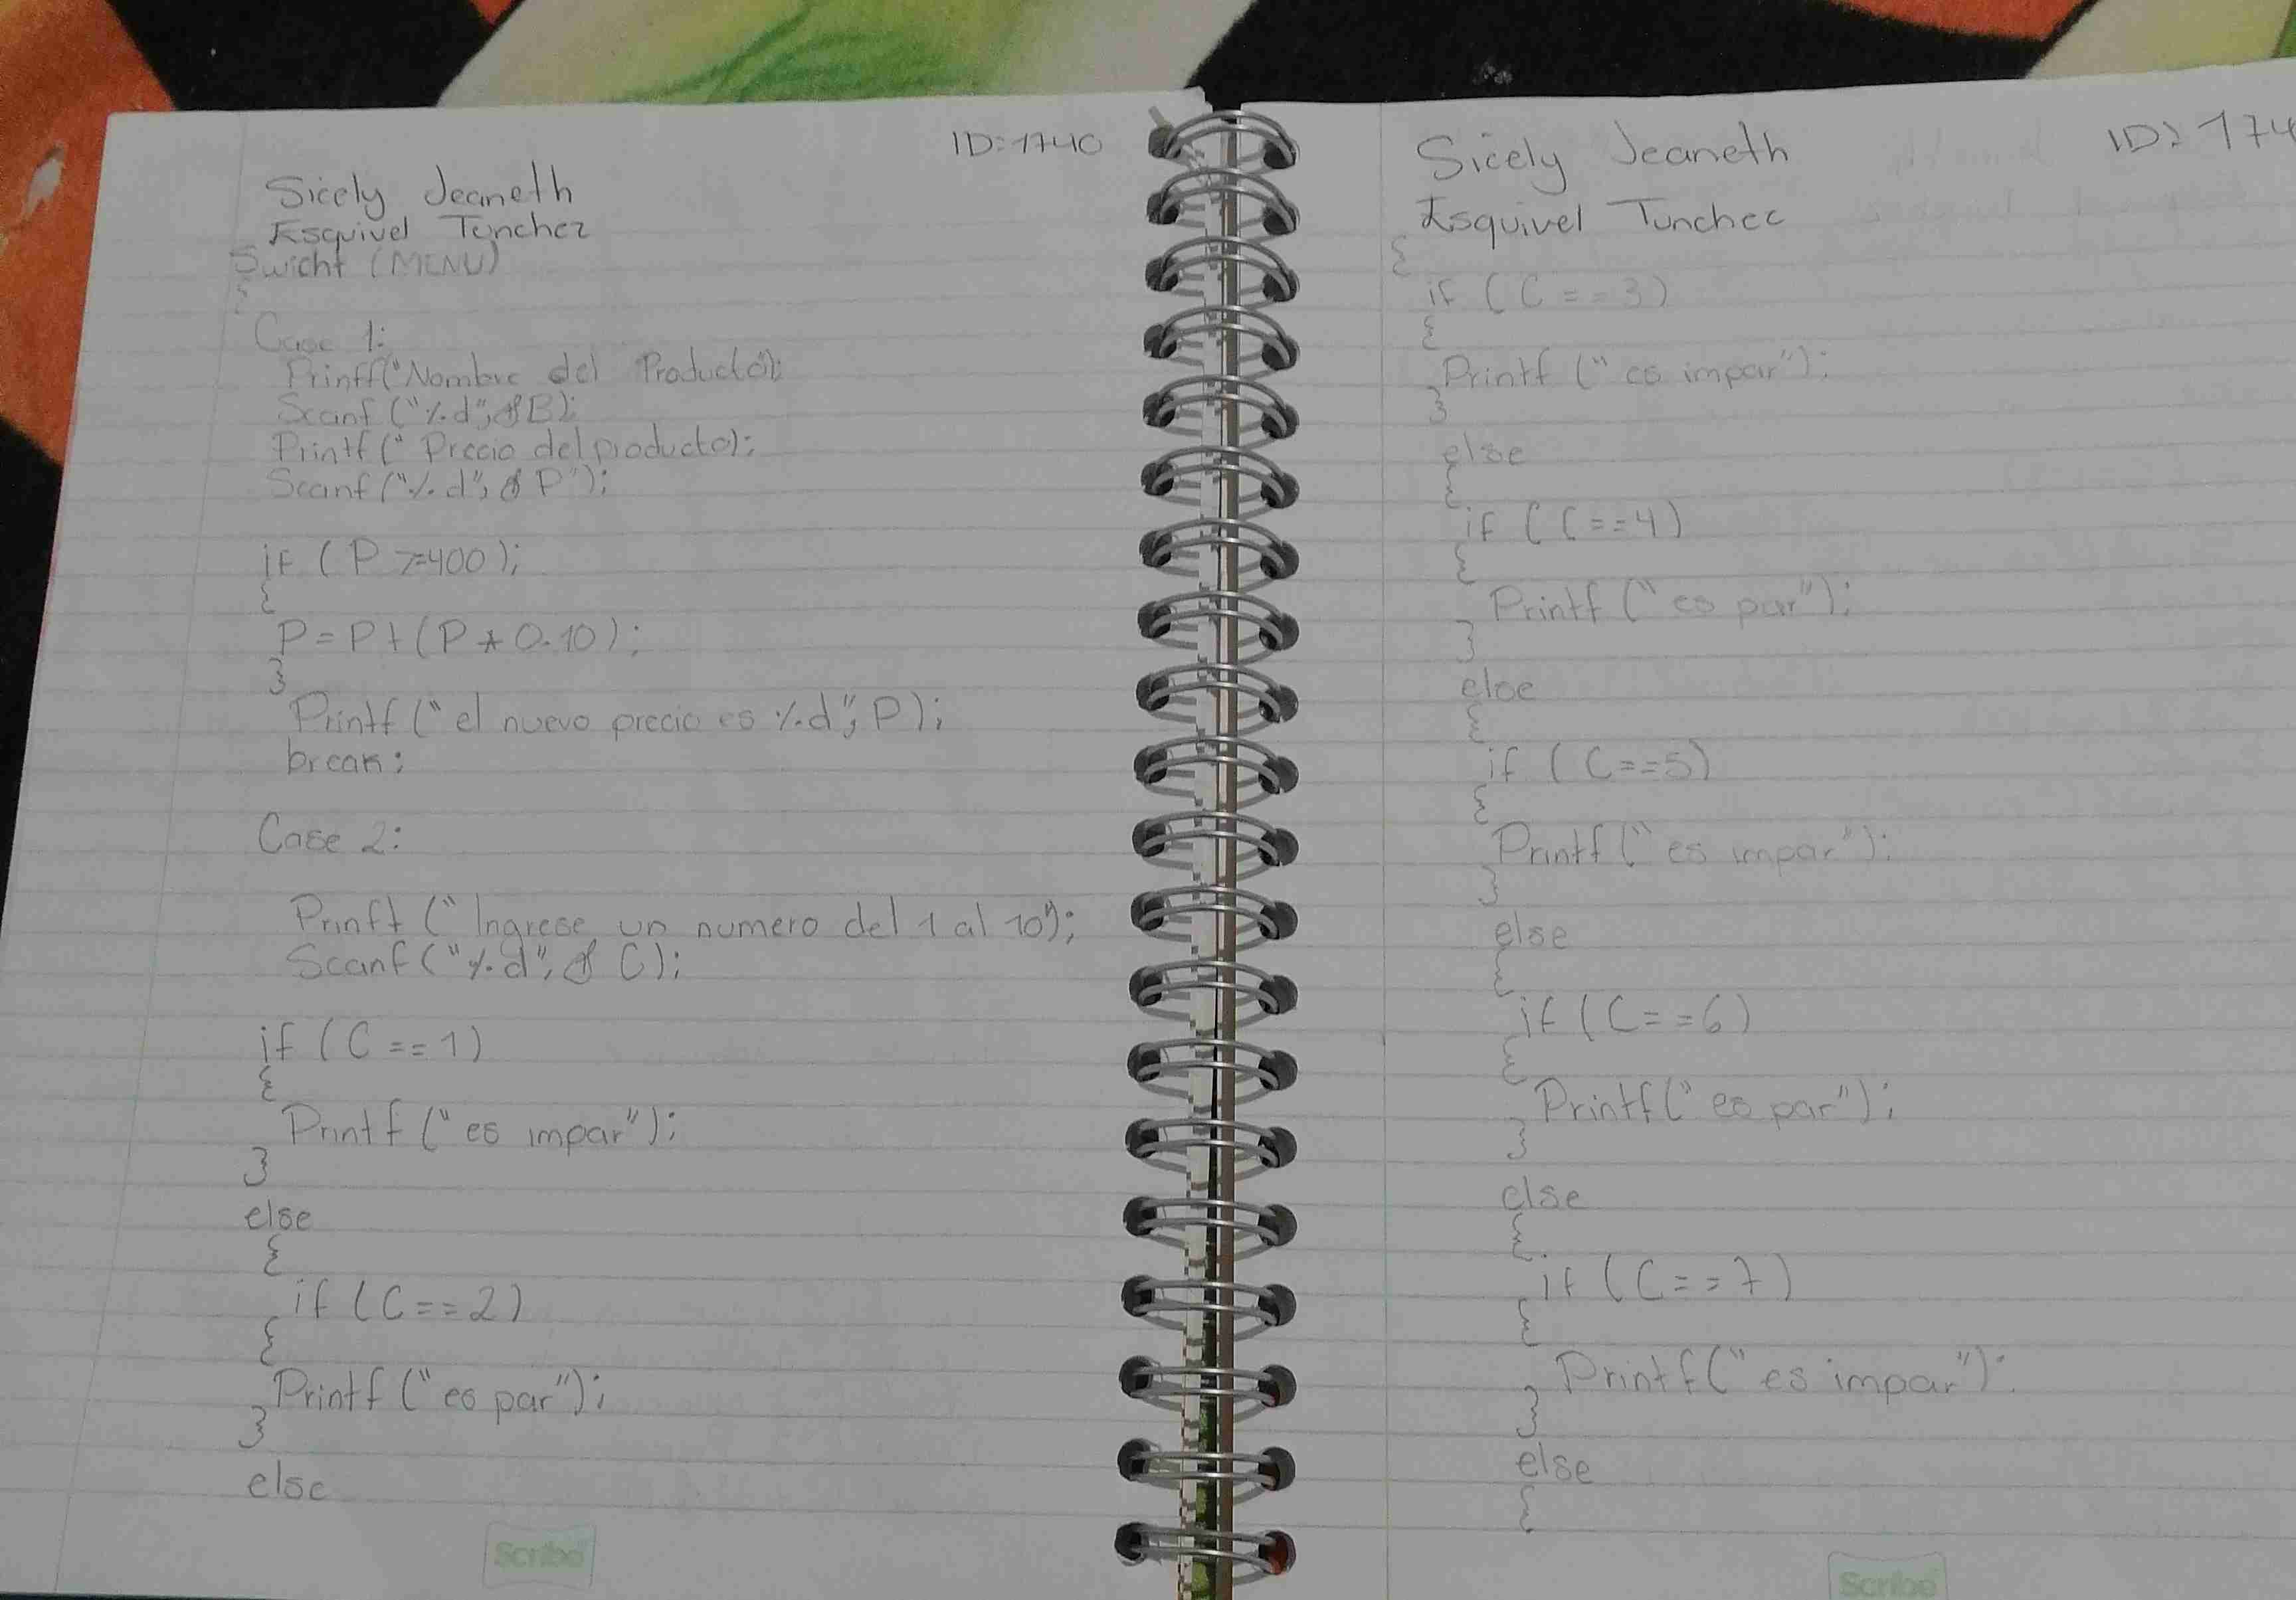 ID:1740
Sicely Jeaneth
Esquivel Tunchez
Swicht (MENU)
{
Case 1:
Printf("Nombre del Producto");
Scanf ("%d",&B);
Printf(" Precio del producto);
Scanf ("%d", & P");
if ( P >=400 );
{
P = P + ( P * 0.10 );
}
Printf (" el nuevo precio es %d", P );
break;
Case 2:
Printf (" Ingrese un numero del 1 al 10");
Scanf ("%d", & C);
if ( C == 1)
{
Printf (" es impar");
}
else
{
if (C==2)
{
Printf (" es par");
}
else
ID: 174
Sicely Jeaneth
Esquivel Tunchec
{
if ( C ==3)
{
Printf (" es impar");
}
else
{
if ( C==4)
{
Printf (" es par");
}
else
{
if ( C==5)
{
Printf (" es impar");
}
else
{
if ( C==6)
{
Printf (" es par");
}
else
{
if ( C==7)
{
Printf (" es impar");
}
else
{
Scribe
Scribe